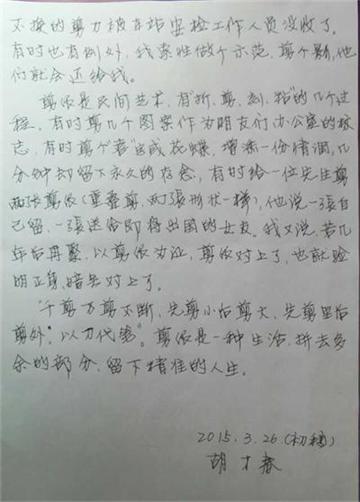 不換的剪刀被车站安检工作人员没收了。
有时也有例外，我索性做个示范，剪个影，他
们就会还给我。
剪纸是民间艺术，有"折、剪、刻、粘"的几个过
程，有时剪几个图案作为朋友们办公室的标
志，有时剪个"春"字或花蝶，增添一份情调，几
分钟却留下永久的存念，有时给一位先生剪
两张剪纸（重叠剪，两张形状一样），他说一張自
己留，一張送给即将出国的女友。我又说，若几
年后再聚，以剪纸为证，剪纸对上了，也就验
明正身，暗号对上了。
"千剪万剪不断，先剪小后剪大，先剪里后
剪外，以刀代笔"。剪纸是一种生活，拼去多
余的部分，留下精准的人生。
2015.3.26(初稿)
胡才春